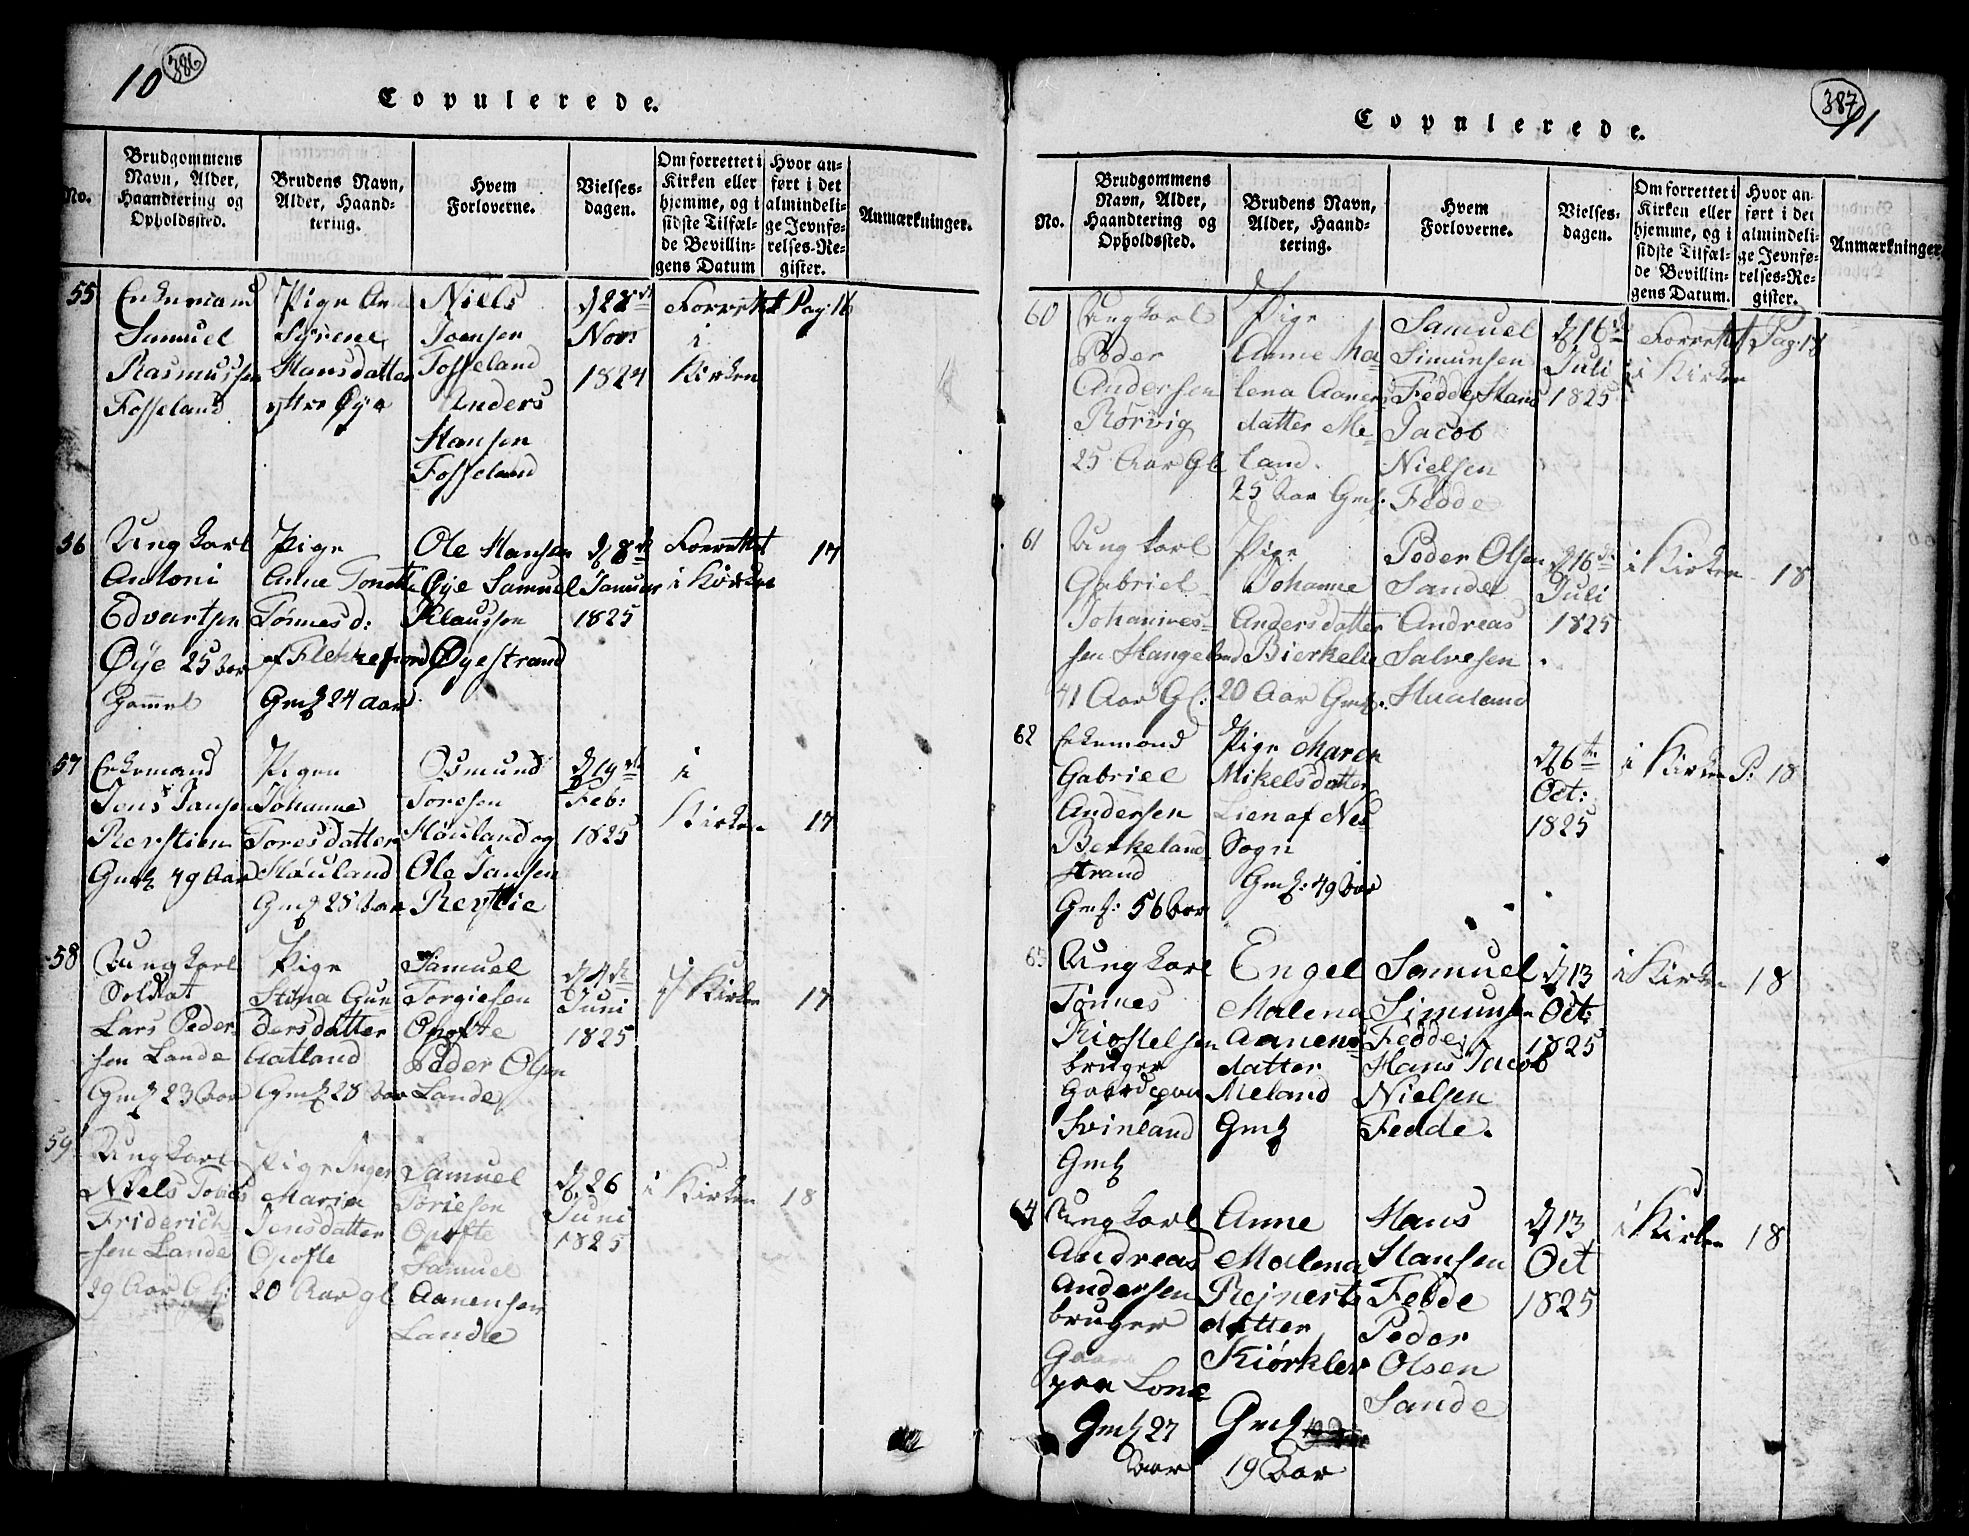 10 386
Copulerede.
No.
Brudgommens
Navn, Alder,
Haandtering og
Opholdssted.
Brudens Navn,
Alder, Haand-
tering.
Hvem
Forloverne.
Vielses-
dagen.
Om forrettet i
Kirken eller
hjemme, og i
sidste Tilfæl-
de Bevillin-
gens Datum
Hvor an-
ført i det
almindeli-
ge Jevnfø-
relses-Re-
gister.
Anmærkninger.
55
Enkemand
Samuel
Rasmussen
Fosseland
Pige
Syrene
Hansdatter
yttre Øye
Niels
Joensen
Fosseland
Anders
Hansen
Fosseland
d 28de
Nov:
1824
Forrettet
i
Kirken
Pag: 16
56
Ung Karl
Antoni
Edvartsen
Øye 25 Aar
Gammel
Pige
Anne Tonette
Tønnes d:
af Flekkefiord
Gml 24 Aar
Ole Hansen
Øye Samuel
Klaussen
Øyestrand
d 8de
Januar
1825
Forrettet
i Kirken
17
57
Enkemand
Jens Jansen
Rerstien
Gml 49 Aar
Pigen
Johanne
Toresdatter
Høuland
Gml 25 Aar
Osmund
Toresen
Høuland og
Ole Jansen
d 19de
Feb:
1825
i
Kirken
17
58
Ung Karl
Soldat
Lars Peder
sen Lande
Gml 23 Aar
Pige
Stina Gun
dersdatter
Aatland
Gml 28 Aar
Samuel
Torgiesen
Opofte
Peder Olsen
Lande
d 4de
Juni
1825
i Kirken
17
59
Ung Karl
Niels Tobias
Friderich
-sen Lande
29 Aar Gl:
Pige Inger
Maria
Jensdatter
Opofte
20 Aar gl
Samuel
Toriesen
Opofte
Samuel
Aanensen
Lande
d 26
Juni
1825
i Kirken
18
387 11
Copulerede.
No.
Brudgommens
Navn, Alder,
Haandtering og
Opholdssted.
Brudens Navn,
Alder, Haand-
tering.
Hvem
Forloverne.
Vielses-
dagen.
Om forrettet i
Kirken eller
hjemme, og i
sidste Tilfæl-
de Bevillin-
gens Datum.
Hvor an-
ført i det
almindeli-
ge Jevnfø-
relses-Re-
gister.
Anmærkninger
60
Ung Karl
Peder
Andersen
Rørvig
25 Aar Gl
Pige
Anne Ma
lena Aanens
datter Me-
land.
25 Aar Gml.
Samuel
Simunsen
Fedde Hans
Jacob
Nielsen
Fedde
d 16de
Juli
1825
Forrettet
i Kirken
Pag: 18
61
Ung Karl
Gabriel
Johannes-
sen Hangeland
41 Aar Gl:
Pige
Johanne
Andersdatter
Bierkeli
20 Aar Gml.
Peder Olsen
Sande
Andreas
Salvesen
Hualand
d 16de
Juli
1825
i Kirken
18
62
Enkemand
Gabriel
Andersen
Berkeland-
strand
Gml: 56 Aar
Pige Maren
Mikelsdatter
Lien af Nes
Sogn
Gml: 49 Aar
d 6te
Oct:
1825
i Kirken
P: 18
63
Ung Karl
Tønnes
Kiostelsen
bruger
Gaard paa
Svinland
Gml
Engel
Malena
Aanens
datter
Meland
Gml
Samuel
Simunsen
Fedde
Hans Jacob
Nielsen
Fedde.
d 13
Oct:
1825
i Kirken
18
64
Ung Karl
Andreas
Andersen
bruger
Gaar
paa Lone
Gml 27
Aar
Anne
Malena
Rejnerts
datter
Kiørkleiv
Gml
19 Aar
Hans
Hansen
Fedde
Peder
Olsen
Sande
d 13
Oct
1825
i Kirken
18